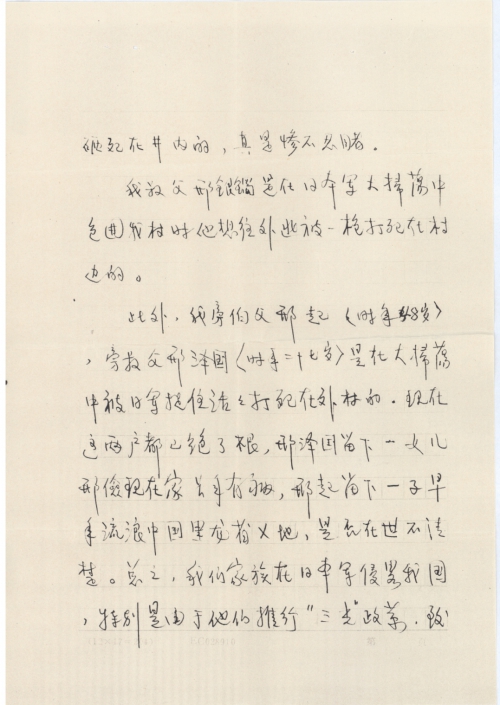 死在井内的，真是惨不忍睹。
我叔父邢锁是在日本军大掃蕩中
包围我村时他想往外逃被一枪打死在村
边的。
此外，我旁伯父邢起〈时年48岁〉
，旁叔父邢泽国〈时年二十七岁〉是在大掃蕩
中被日军捉住活々打死在外村的．现在
这两户都已绝了根，邢泽国留下一女儿
邢俊现在家，邢起留下一子早
年流浪中国黑龙省X地，是否在世不清
楚。总之，我们家族在日本军侵略我国
，特别是由于他们推行"三光"政策．致